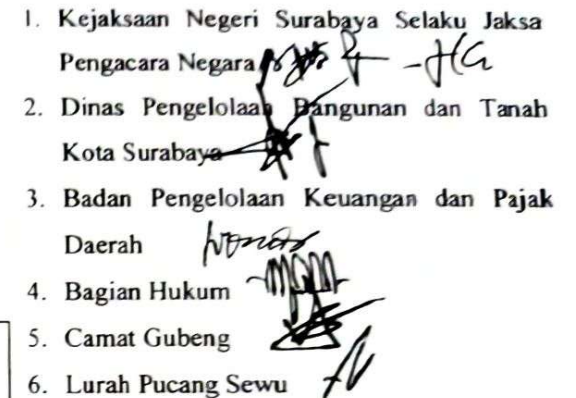 1. Kejaksaan Negeri Surabaya Selaku Jaksa
Pengacara Negara
2. Dinas Pengelolaan Bangunan dan Tanah
Kota Surabaya
3. Badan Pengelolaan Keuangan dan Pajak
Daerah
4. Bagian Hukum
5. Camat Gubeng
6. Lurah Pucang Sewu